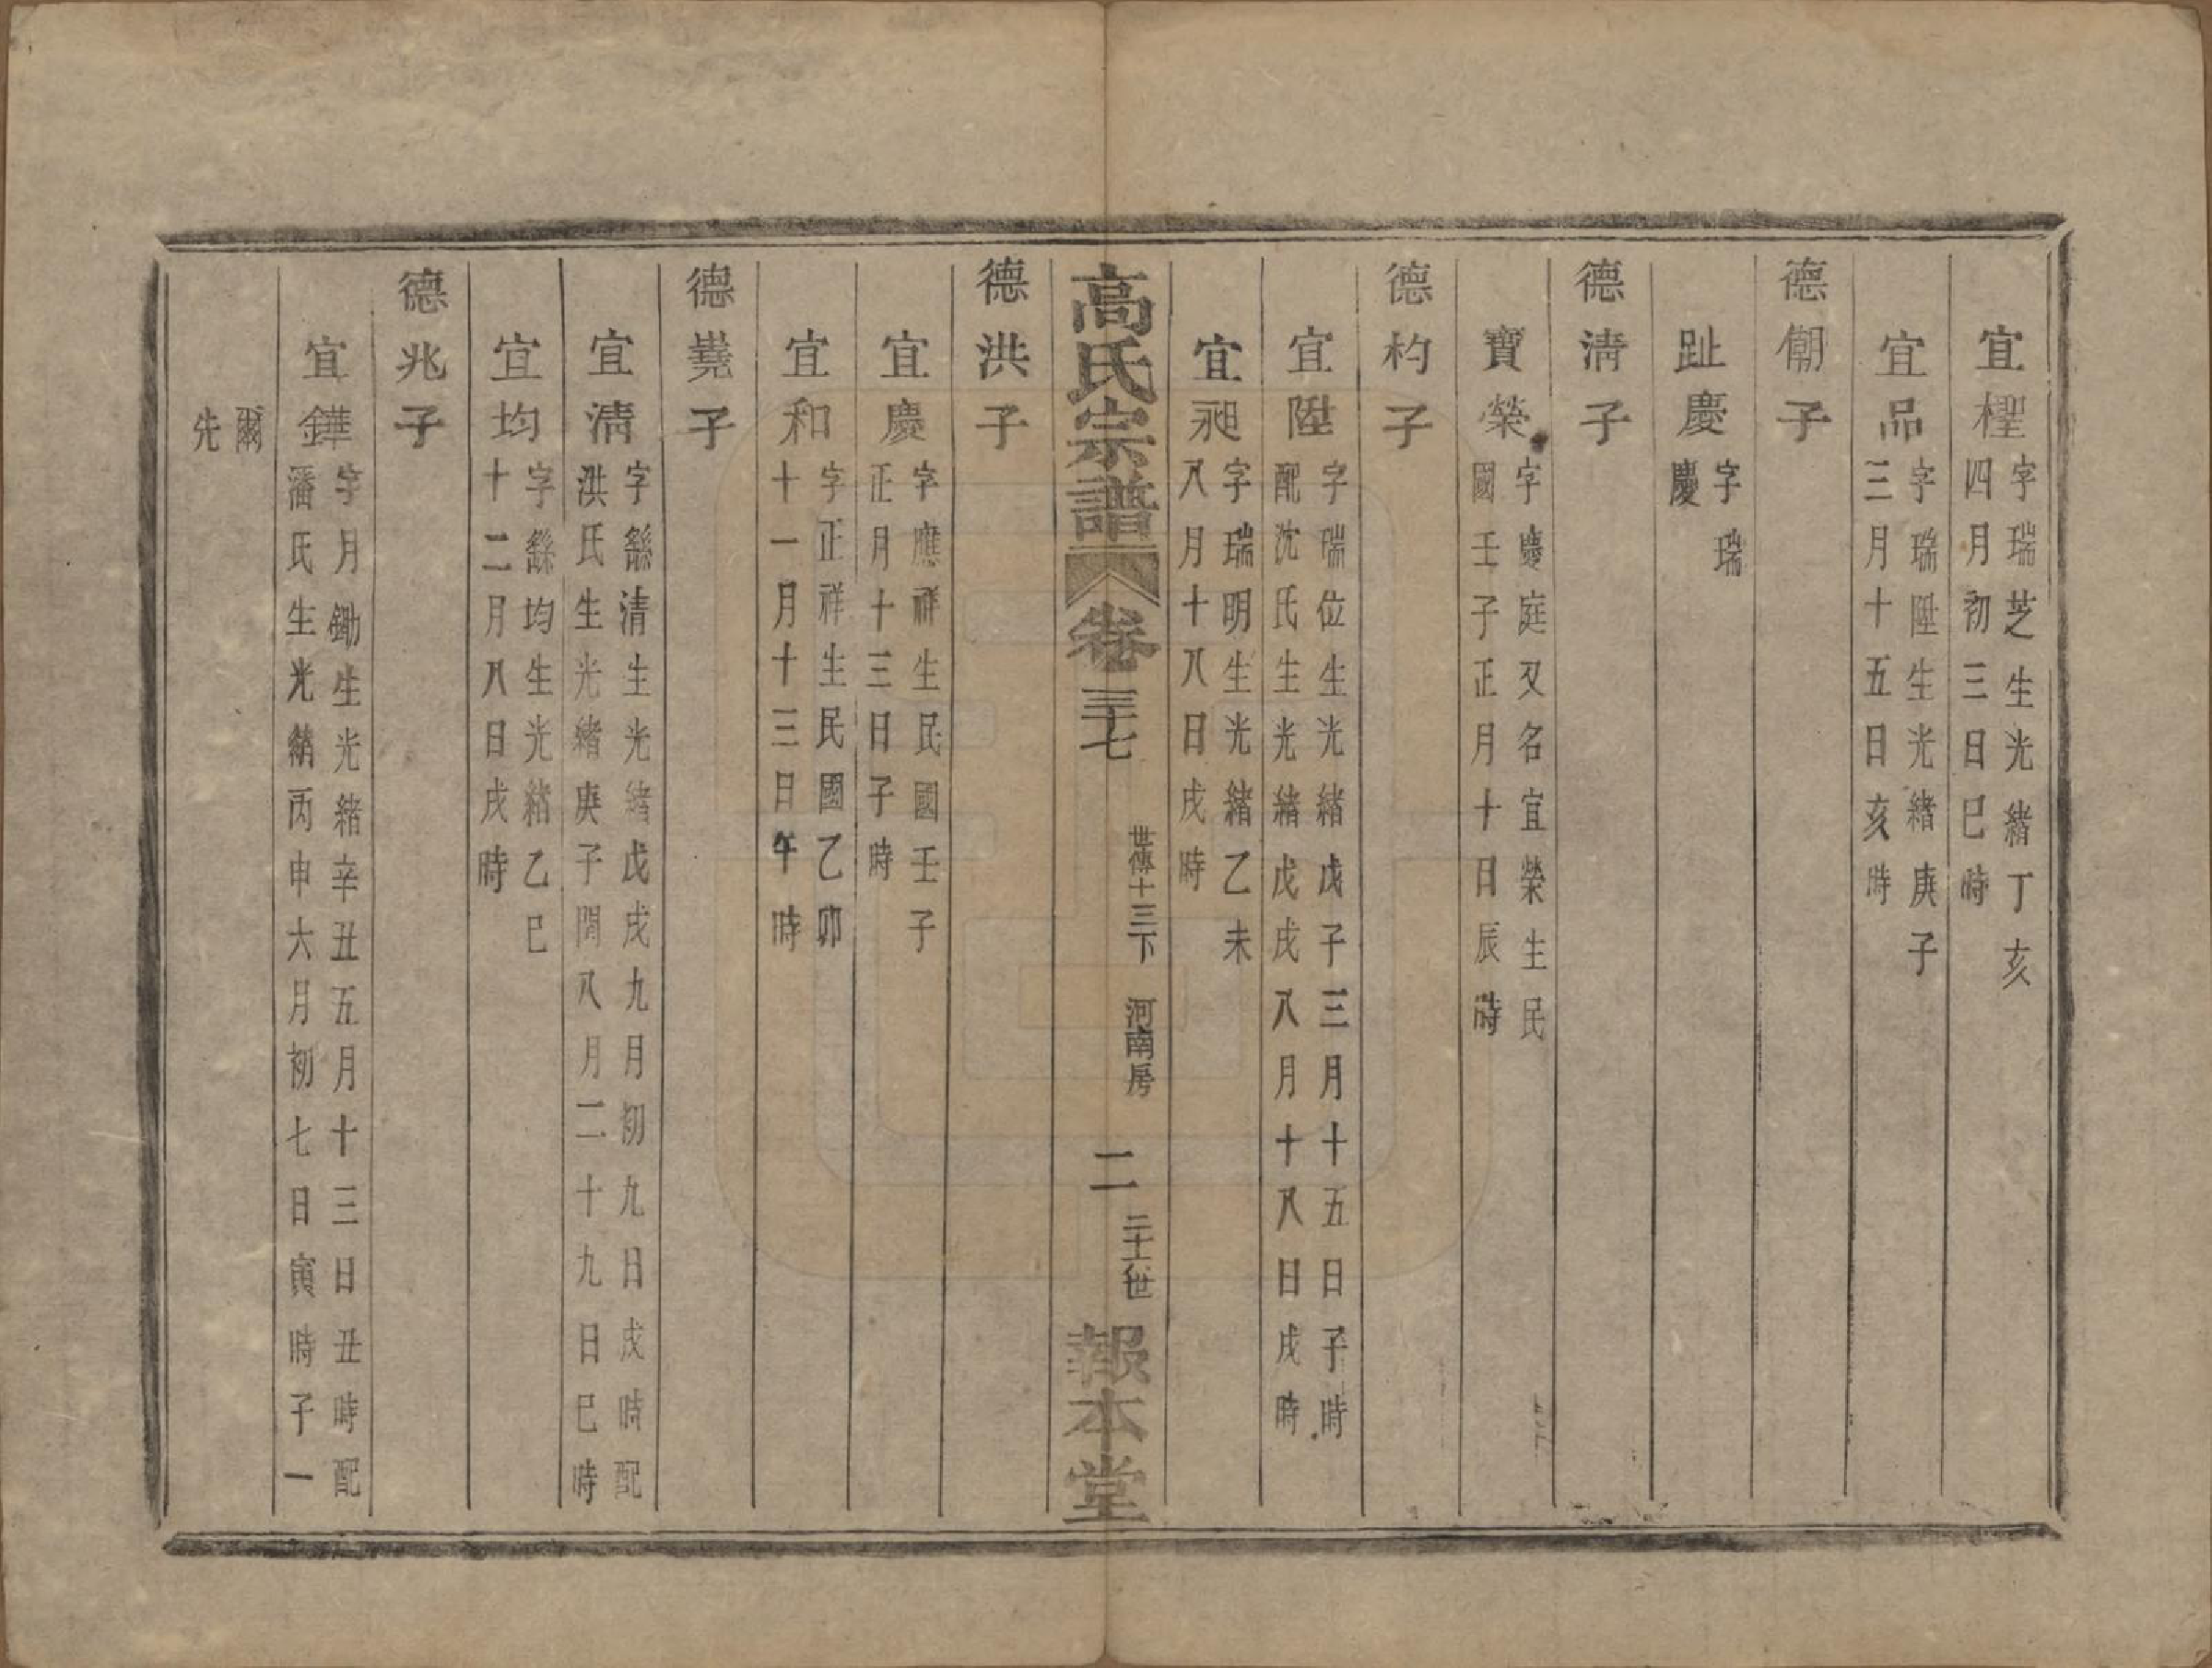 宜檉
字瑞芝生光緒丁亥
四月初三日巳時
宜品
字瑞陞生光緒庚子
三月十五日亥時
德鄮子
趾慶
字瑞
慶
德清子
寶榮
字慶庭又名宜榮生民
國壬子正月十日辰時
德杓子
宜陞
字瑞位生光緒戊子三月十五日子時
配沈氏生光緒戊戌八月十八日戌時
宜昶
字瑞明生光緒乙未
八月十八日戌時
高氏宗譜
卷三十七
世傳十三下 河南房
二
二十一世
報本堂
德洪子
宜慶
字應祥生民國壬子
正月十三日子時
宜和
字正祥生民國乙卯
十一月十三日午時
德嶤子
宜清
字繇清生光緒戊戌九月初九日戌時配
洪氏生光緒庚子閏八月二十九日巳時
宜均
字繇均生光緒乙巳
十二月八日戌時
德兆子
宜鏵
字月鋤生光緒辛丑五月十三日丑時配
潘氏生光緒丙申六月初七日寅時子一
爾
先